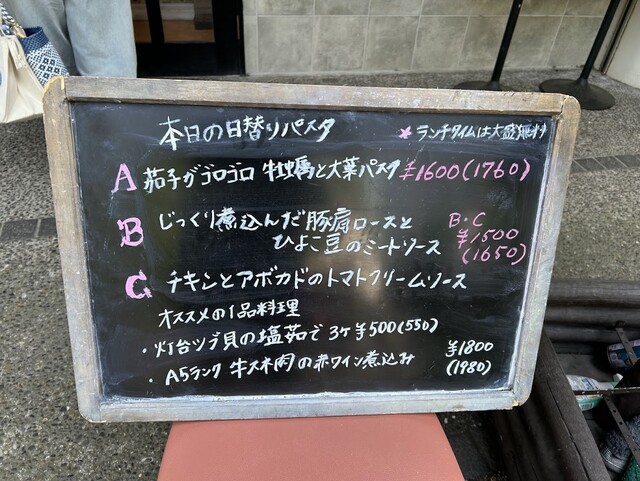 本日の日替りパスタ
★ランチタイムは大盛無料
A 茄子がゴロゴロ 牡蠣と大葉パスタ ¥1600(1760)
B じっくり煮込んだ豚肩ロースと
ひよこ豆のミートソース
B・C
¥1500
(1650)
C チキンとアボカドのトマトクリームソース
オススメの1品料理
・灯台ツブ貝の塩茹で 3ケ¥500(550)
・A5ランク 牛スネ肉の赤ワイン煮込み ¥1800
(1980)